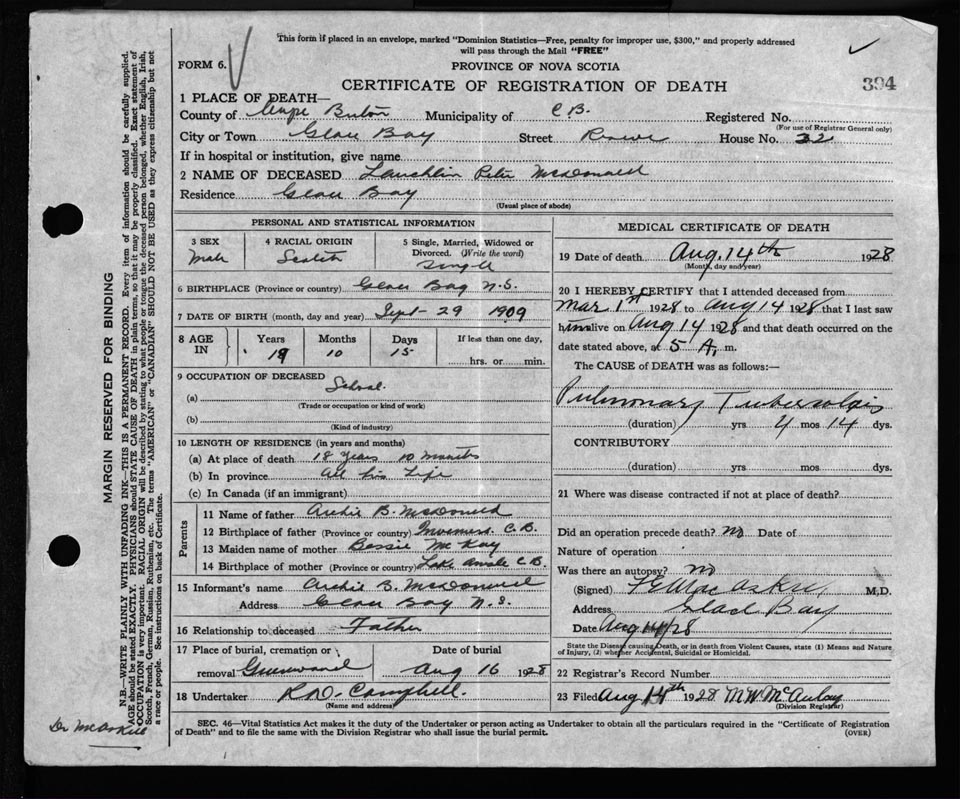 This form if placed in an envelope, marked "Dominion Statistics—Free, penalty for improper use, $300," and properly addressed
will pass through the Mail "FREE"
FORM 6.
PROVINCE OF NOVA SCOTIA
CERTIFICATE OF REGISTRATION OF DEATH
394
1 PLACE OF DEATH—
County of Cape Breton Municipality of C.B. Registered No.
(For use of Registrar General only)
City or Town Glace Bay Street Rowe House No. 32
If in hospital or institution, give name
2 NAME OF DECEASED Lauchlin Peter McDonald
Residence Glace Bay
(Usual place of abode)
PERSONAL AND STATISTICAL INFORMATION
3 SEX 4 RACIAL ORIGIN 5 Single, Married, Widowed or
Divorced. (Write the word)
Male Scotch Single
6 BIRTHPLACE (Province or country) Glace Bay N.S.
7 DATE OF BIRTH (month, day and year) Sept 29 1909
8 AGE IN Years Months Days If less than one day,
10 15 hrs. or min.
9 OCCUPATION OF DECEASED School
(a)
(Trade or occupation or kind of work)
(b)
(Kind of industry)
10 LENGTH OF RESIDENCE (in years and months)
(a) At place of death 18 Years 10 Months
(b) In province All his Life
(c) In Canada (if an immigrant)
Parents
11 Name of father Archie B. McDonald
12 Birthplace of father (Province or country) C.B.
13 Maiden name of mother Bessie McKay
14 Birthplace of mother (Province or country) Lake Ainslie C.B.
15 Informant's name Archie B. McDonald
Address Glace Bay N.S.
16 Relationship to deceased Father
17 Place of burial, cremation or Date of burial
removal Greenwood Aug 16 1928
18 Undertaker Campbell
(Name and address)
MEDICAL CERTIFICATE OF DEATH
19 Date of death Aug. 14th 1928
(Month, day and year)
20 I HEREBY CERTIFY that I attended deceased from
Mar 1st 1928 to Aug 14 1928 that I last saw
him alive on Aug 14 1928 and that death occurred on the
date stated above, at 5 A. m.
The CAUSE of DEATH was as follows:—
Pulmonary Tuberculosis
(duration) yrs 4 mos 14 dys.
CONTRIBUTORY
(duration) yrs mos dys.
21 Where was disease contracted if not at place of death?
Did an operation precede death? No Date of
Nature of operation
Was there an autopsy? No
(Signed) M.D.
Address Glace Bay
Date Aug 14/28
State the Disease causing Death, or in death from Violent Causes, state (1) Means and Nature
of Injury, (2) whether Accidental, Suicidal or Homicidal.
22 Registrar's Record Number
23 Filed Aug 14th 1928 McAulay
(Division Registrar)
SEC. 46—Vital Statistics Act makes it the duty of the Undertaker or person acting as Undertaker to obtain all the particulars required in the "Certificate of Registration
of Death" and to file the same with the Division Registrar who shall issue the burial permit.
(OVER)
MARGIN RESERVED FOR BINDING
N.B.—WRITE PLAINLY WITH UNFADING INK—THIS IS A PERMANENT RECORD. Every item of information should be carefully supplied.
AGE should be stated EXACTLY. PHYSICIANS should STATE CAUSE OF DEATH in plain terms, so that it may be properly classified. Exact statement of
OCCUPATION is very important. RACIAL ORIGIN will be described by stating to what people or tongue the deceased person belonged, whether English, Irish,
Scotch, French, German, Russian, Ruthenian, etc. The terms "AMERICAN" or "CANADIAN" SHOULD NOT BE USED as they express citizenship but not
a race or people. See instructions on back of Certificate.
Dr